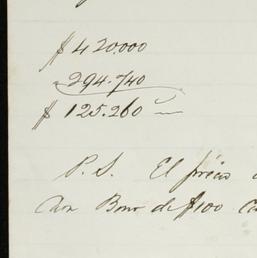 $420.000
294.740
$125.260
P. S. El precio
Bono de $100